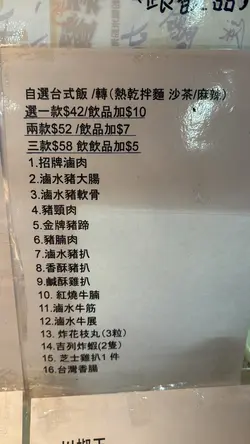 自選台式飯 /轉(熱乾拌麵 沙茶/麻辣)
選一款$42/飲品加$10
兩款$52 /飲品加$7
三款$58 飲飲品加$5
1.招牌滷肉
2.滷水豬大腸
3.滷水豬軟骨
4.豬頸肉
5.金牌豬蹄
6.豬腩肉
7.滷水豬扒
8.香酥豬扒
9.鹹酥雞扒
10. 紅燒牛腩
11.滷水牛筋
12.滷水牛展
13. 炸花枝丸(3粒)
14.吉列炸蝦(2隻)
15. 芝士雞扒1 件
16.台灣香腸